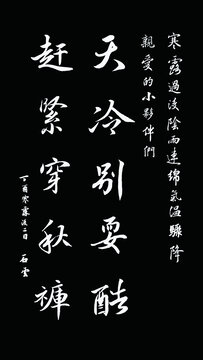 寒露過後陰雨連綿氣溫驟降
親愛的小夥伴們
天冷别耍酷
赶緊穿秋褲
丁酉寒露後二日 石雲